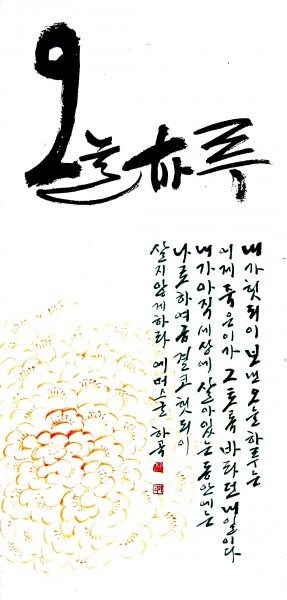 오늘하루
내가 헛되이 보낸 오늘 하루는
어제 죽은 이가 그토록 바라던 내일이다
내가 아직 세상에 살아 있는 동안에는
나로 하여금 결코 헛되이
살지 않게 하라 에머슨 글 하곡